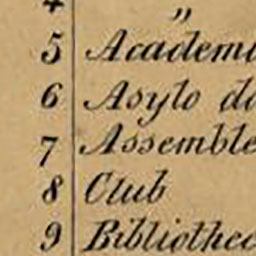 4 "
5 Academi
6 Asylo do
7 Assemble
8 Club
9 Bibliothec